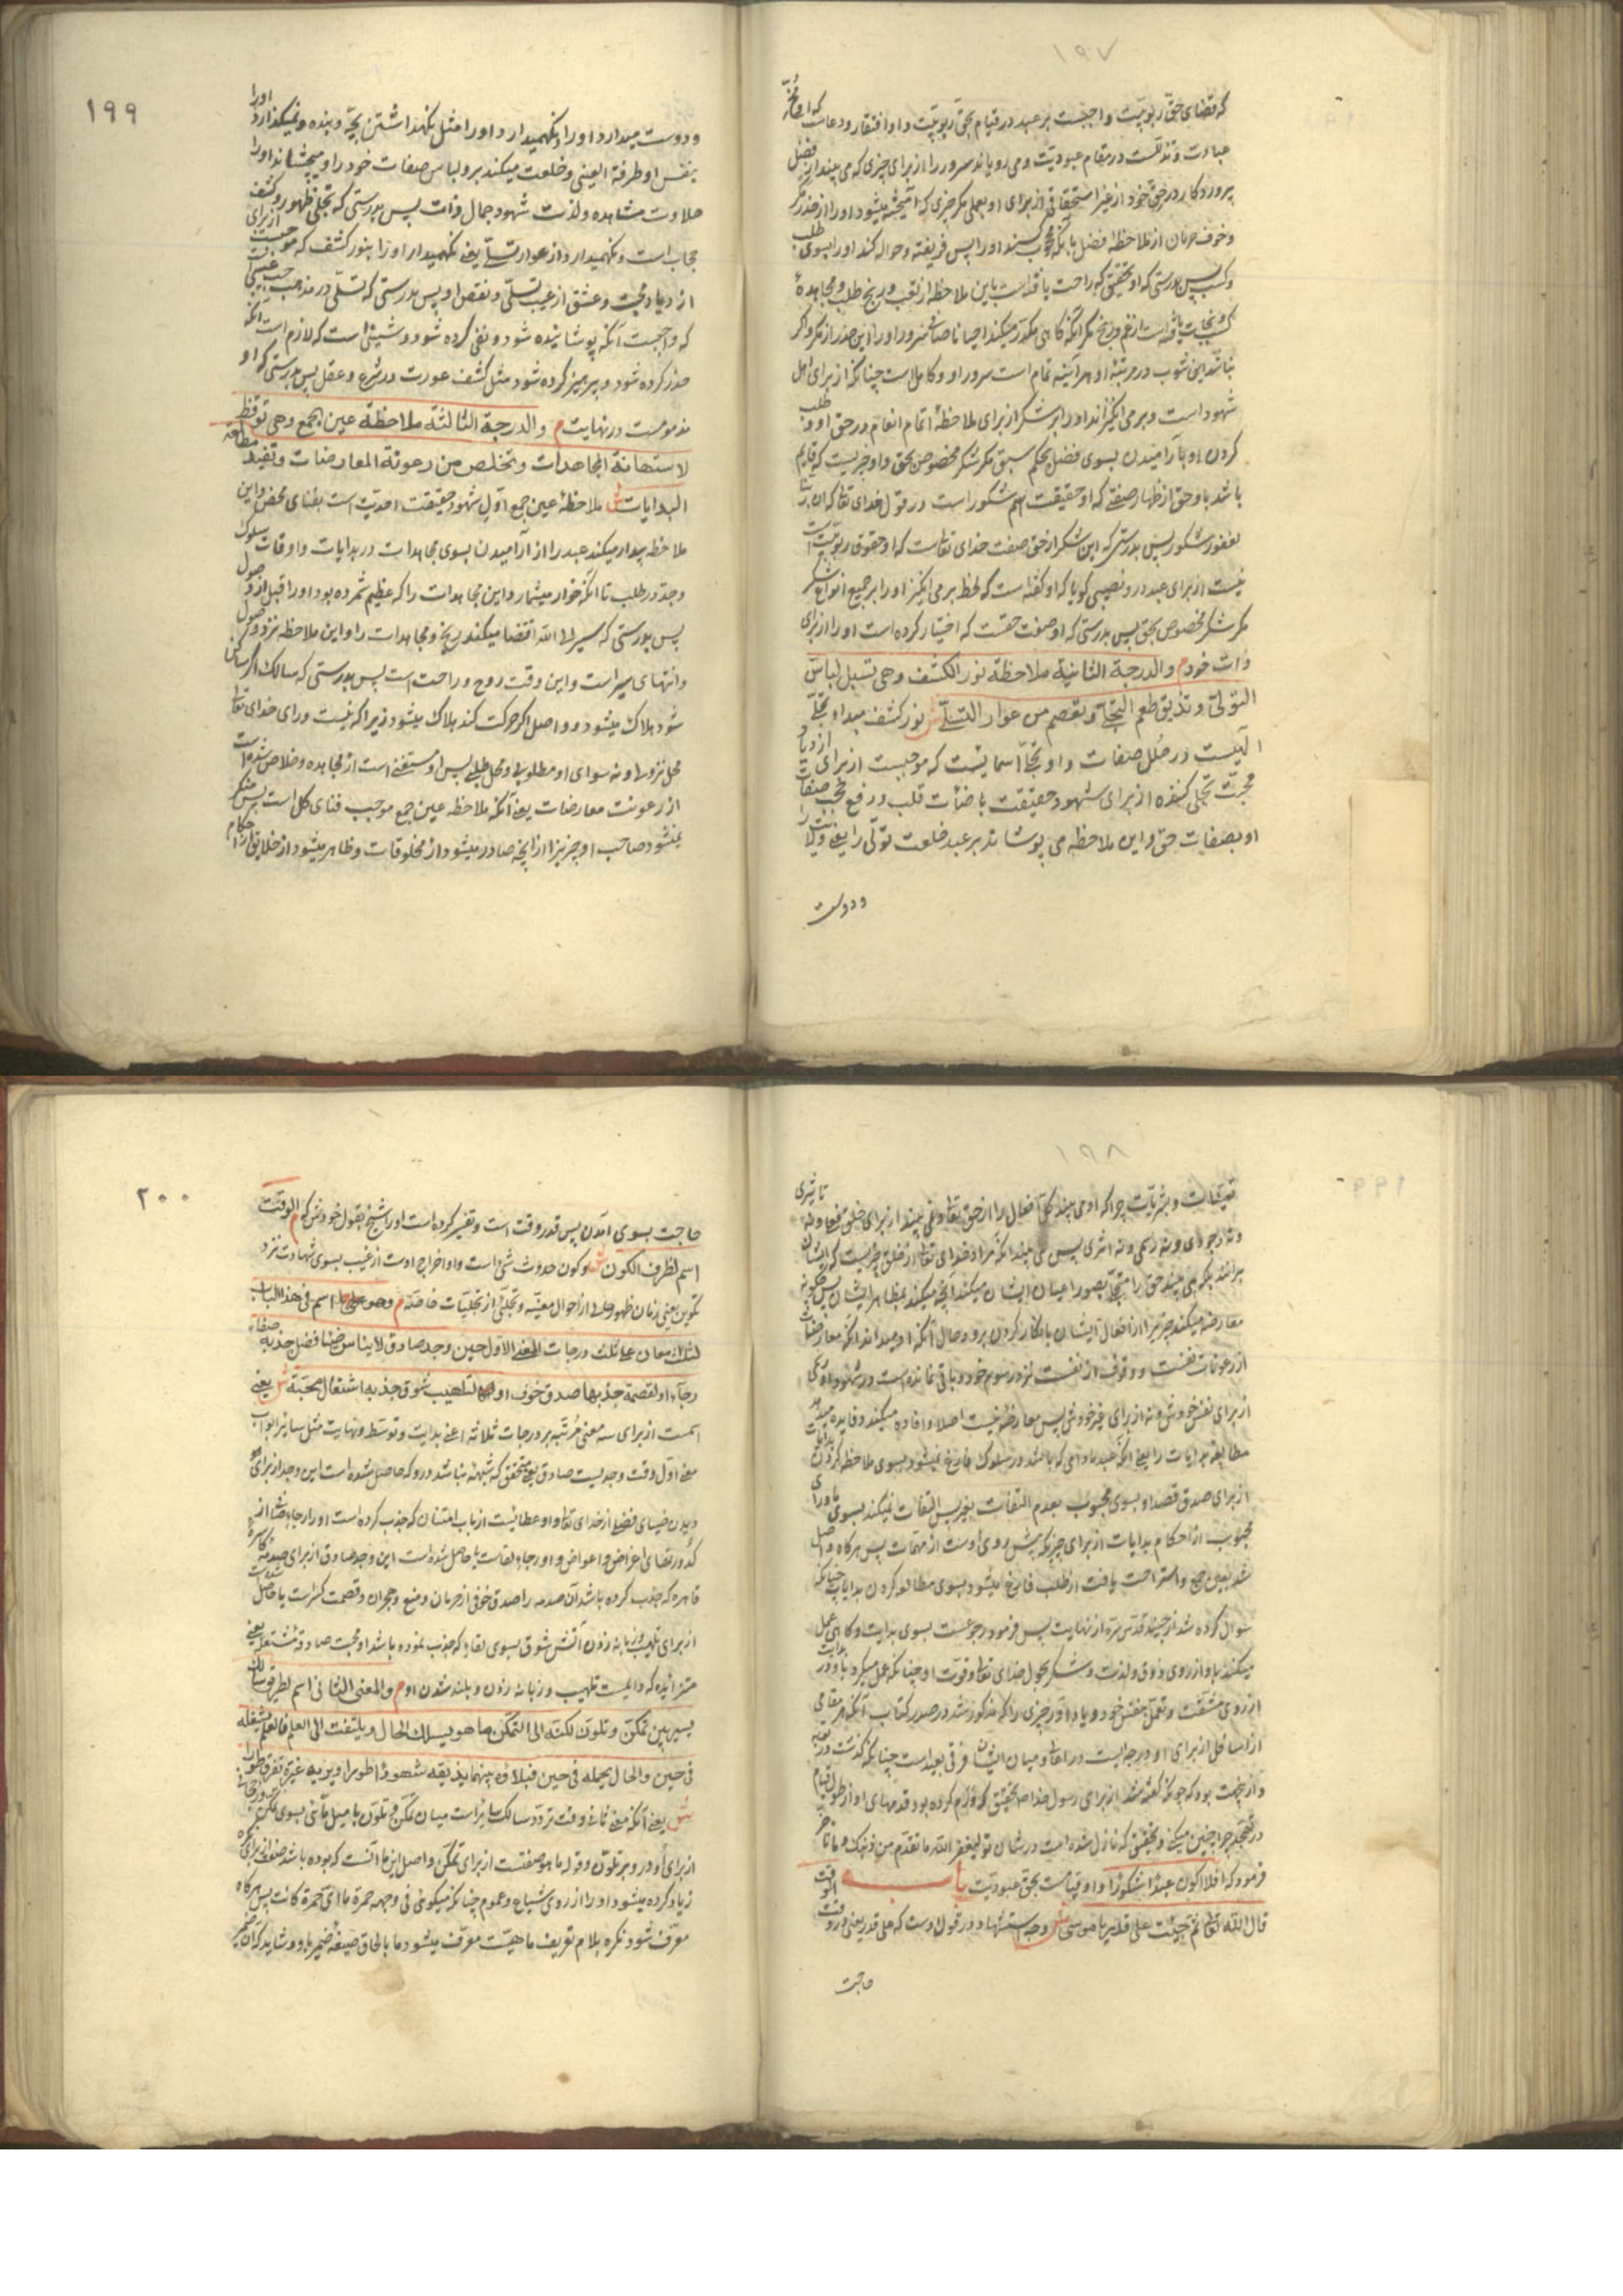 ۱۹۷
که قضای حق ربوبیت واجبست بر عبد در قیام بحق ربوبیت و او افتقار و دعاست که او مخ
عبادت و تذللست در مقام عبودیت و می رویاند سرور را از برای چیزی که می بیند از فضل
پروردکار در حق خود از غیر استحقاقی از برای او بعملی مکر چیزی که آمیخته میشود او را از حذر مکر
و خوف حرمان از ملاحظهٔ فضل با آنکه محجوب کند او را پس فریفته و حواله کند او را بسوی طلب
و کسب پس بدرستی که او بتحقیق که راحت یافته است باین ملاحظه از تعب و رنج طلب و مجاهدهٔ
کسب و نجات یافته است از غم و رنج مکر آنکه کاهی مکدر میکند احیانا صفای سرور او را این حذر از مکر و اکر
نباشد این شوب در مرتبهٔ او هر آینه تمام است سرور او و کاملست چنانکه از برای اهل
شهود است و بر می انکیزاند او را بر شکر از برای ملاحظهٔ اتمام انعام در حق او و طلب
کردن او یا آرامیدن بسوی فضل بحکم سبق مکر شکر مخصوص بحق و او چیزیست که قایم
باشد باو حق از ظهار صفتی که او حقیقت اسم شکور است در قول خدای تعالی که ان ربنا
لغفور شکور پس بدرستی که این شکر از حق صفت خدای تعالی است که او حقوق ربوبیت است
نیست از برای عبد در و نصیبی کویا که او کفته است که لحظ بر می انکیزد او را بر جمیع انواع شکر
مکر شکر مخصوص بحق پس بدرستی که او صفت حقست که اختیار کرده است او را از برای
ذات خود م والدرجة الثانیة ملاحظة نور الکشف وهی تسبل لباس
التولی وتذیق طعم التجلی وتعصم من عوار التسلی ش نور کشف مبداء تجلی
و او تجلی اسمائیست که موجبست از برای ازدیاد
محبت تجلی کننده از برای شهود حقیقت با ضنات قلب و رفع حجب صفات
او بصفات حق و این ملاحظه می پوشاند بر عبد خلعت تولی را یعنی ولایت را
و دوست
۱۹۹
و دوست میدارد او را و نکهمیدارد او را مثل نکهداشتن بچه و بنده و نمیکذارد او را
بنفس او طرفة العینی و خلعت میکند برو لباس صفات خود را و میچشاند او را
حلاوت مشاهده و لذت شهود جمال ذات پس بدرستی که تجلی ظهور و کشف
حجاب است و نکهمیدارد از عوار تسلی یعنی نکهمیدارد او را بنور کشف که موجبست از برای
ازدیاد محبت و عشق از عیب تسلی و نقص او پس بدرستی که تسلی در مذهب حب عیبی است
که واجبست آنکه پوشانیده شود و نفی کرده شود و شینی است که لازم است آنکه
حذر کرده شود و پرهیز کرده شود مثل کشف عورت در شرع و عقل پس بدرستی که او
مذمومست در نهایت م والدرجة الثالثة ملاحظة عین الجمع وهی توقظ
لاستهانة المجاهدات وتخلص من رعونة المعارضات وتفید مطالعة
البدایات ش ملاحظهٔ عین جمع اول شهود حقیقت احدیت است بفنای محض و این
ملاحظه بیدار میکند عبد را از آرامیدن بسوی مجاهدات در بدایات و اوقات سلوک
و جد در طلب تا آنکه خوار میشمارد این مجاهدات را که عظیم شمرده بود او را قبل از وصول
پس بدرستی که سیر الی الله اقتضا میکند رنج و مجاهدات را و این ملاحظه نزد وصول
و انتهای سیر است و این وقت روح و راحت است پس بدرستی که سالک اکر ساکن
شود هلاک میشود و واصل اکر حرکت کند هلاک میشود زیرا که نیست ورای خدای تعالی
محل نزولی و نه سوای او مطلوبی و محل طلبی پس او مستغنی است از مجاهده و خلاص شده است
از رعونت معارضات یعنی آنکه ملاحظه عین جمع موجب فنای کل است پس منکر
نمیشود صاحب او چیزی را از آنچه صادر میشود از مخلوقات و ظاهر میشود از خلایق از احکام
۱۹۸
تعینات و بشریات چرا که او می بیند کل افعال را از حق تعالی و نمی بیند از برای خلق فعلی و نه تاثیری
و نه وجودی و نه رسمی و نه اثری پس می بیند آنکه مراد خدای تعالی از خلق چیزیست که ایشان
برانند بلکه می بیند حق را متجلی بصور اعیان ایشان میکند آنچه میکند بمظاهر ایشان پس چکونه
معارضه میکند چیزی را از افعال ایشان بانکار کردن برو و حال آنکه او میداند آنکه معارضات
از رعونات نفست و وقوف از نفست نزد رسوم خود و باقی نمانده است در شهود او رسمی
از برای نفس خودش و نه از برای غیر خودش پس معارضه نیست اصلا و افاده میکند و فایده میدهد
مطالعه بدایات را یعنی آنکه عبد مادامی که باشد در سلوک فارغ نمیشود بسوی ملاحظه کردن بدایات
از برای صدق قصد او بسوی محبوب بعدم التفات بغیر پس التفات نمیکند بسوی ماورای
محبوب از احکام بدایات از برای چیزیکه پیش روی اوست از مهمات پس هرکاه واصل
شد بعین جمع و استراحت یافت از طلب فارغ میشود بسوی مطالعه کردن بدایات چنانکه
سوال کرده شد از جنید قدس سره از نهایت پس فرمود رجوعست بسوی بدایت و کاهی عمل
میکند باو از روی ذوق و لذت و شکر بحول خدای تعالی و قوت او چنانکه عمل میکرد باو در بدایت
از روی مشقت و تعمل بنفس خود و یاد آور چیزی را که مذکور شد در صدر کتاب آنکه هر مقامی
از اسافل از برای او درجه ایست در اعالی و میان ایشان فرقی بعید است چنانکه کذشت در توبه
و از نجهت بود که چونکه کفته شد از برای رسول خدا صلعم بتحقیق که ورم کرده بود قدمهای او از طول قیام
در تهجد چرا چنین میکنی و بتحقیق که نازل شده است در شان تو لیغفر الله ما تقدم من ذنبک وما تاخر
فرمود که افلا اکون عبدا شکورا و او قیامست بحق عبودیت باب الوقت
قال الله تعالی ثم جئت علی قدر یا موسی ش وجه استشهاد در قول اوست که علی قدر یعنی در وقت
حاجت
۲۰۰
حاجت بسوی آمدن پس قدر وقت است و تفسیر کرده است او را شیخ بقول خودش که م الوقت
اسم لظرف الکون ش و کون حدوث شی است و او اخراج اوست از غیب بسوی شهادت نزد
تکوین یعنی زمان ظهور حالی از احوال معینه و تجلی از تجلیات خاصه م وهو اسم فی هذا الباب
لثلث معان علی ثلث درجات المعنی الاول حین وجد صادق لایناس ضیاء فضل جذبه صفاء
رجاء او لعصمة جذبها صدق خوف او لتلهیب شوق جذبه اشتعال محبة ش یعنی
اسمست از برای سه معنی مرتبه بر درجات ثلاثه اعنی بدایت و توسط و نهایت مثل سایر ابواب
معنی اول وقت وجدیست صادق یعنی متحقق که شبهه نباشد درو که حاصل شده است این وجد از برای
دیدن ضیای فضلی از خدای تعالی و او عطائیست از باب امتنان که جذب کرده است او را رجاء صافی از
کدورتهای اغراض و اعواض و او رجاء لقاست یا حاصل شده است این وجد صادق از برای صدمهٔ
قاهره که جذب کرده باشد آن صدمه را صدق خوفی از حرمان و منع و هجران و قصمت کسرت یا حاصل
از برای تلهیب و زبانه زدن آتش شوق بسوی لقاء که جذب نموده باشد او محبت صادقه مشتعله یعنی
متزائیده که دائمست تلهیب و زبانه زدن و بلند شدن او م والمعنی الثانی اسم لطریق سالک
یسیر بین تمکن وتلون لکنه الی التمکن ما هو یسلک الحال ویلتفت الی العلم فالعلم یشغله
فی حین والحال یحمله فی حین فبلاؤه بینهما یذیقه شهودا طورا ویریه غیرة تفرق طورا
ش یعنی آنکه معنی ثانی وقت تردد سالک سایر است میان تمکن و تلون با میل مائی بسوی تمکن
از برای او در و بر تلون و قوله ما هو صفتست از برای تمکن و اصل این ما آنست که بوده باشد صفت از برای نکره
زیاد کرده میشود او را از روی شیاع و عموم چنانکه میکوئی فی وجهه حمرة ما ای حمرة کانت پس هرکاه
معرف شود نکره بلام تعریف ماهیت معرف میشود ما بالحاق صیغهٔ ضمیر باو و شاید که آن ضمیر